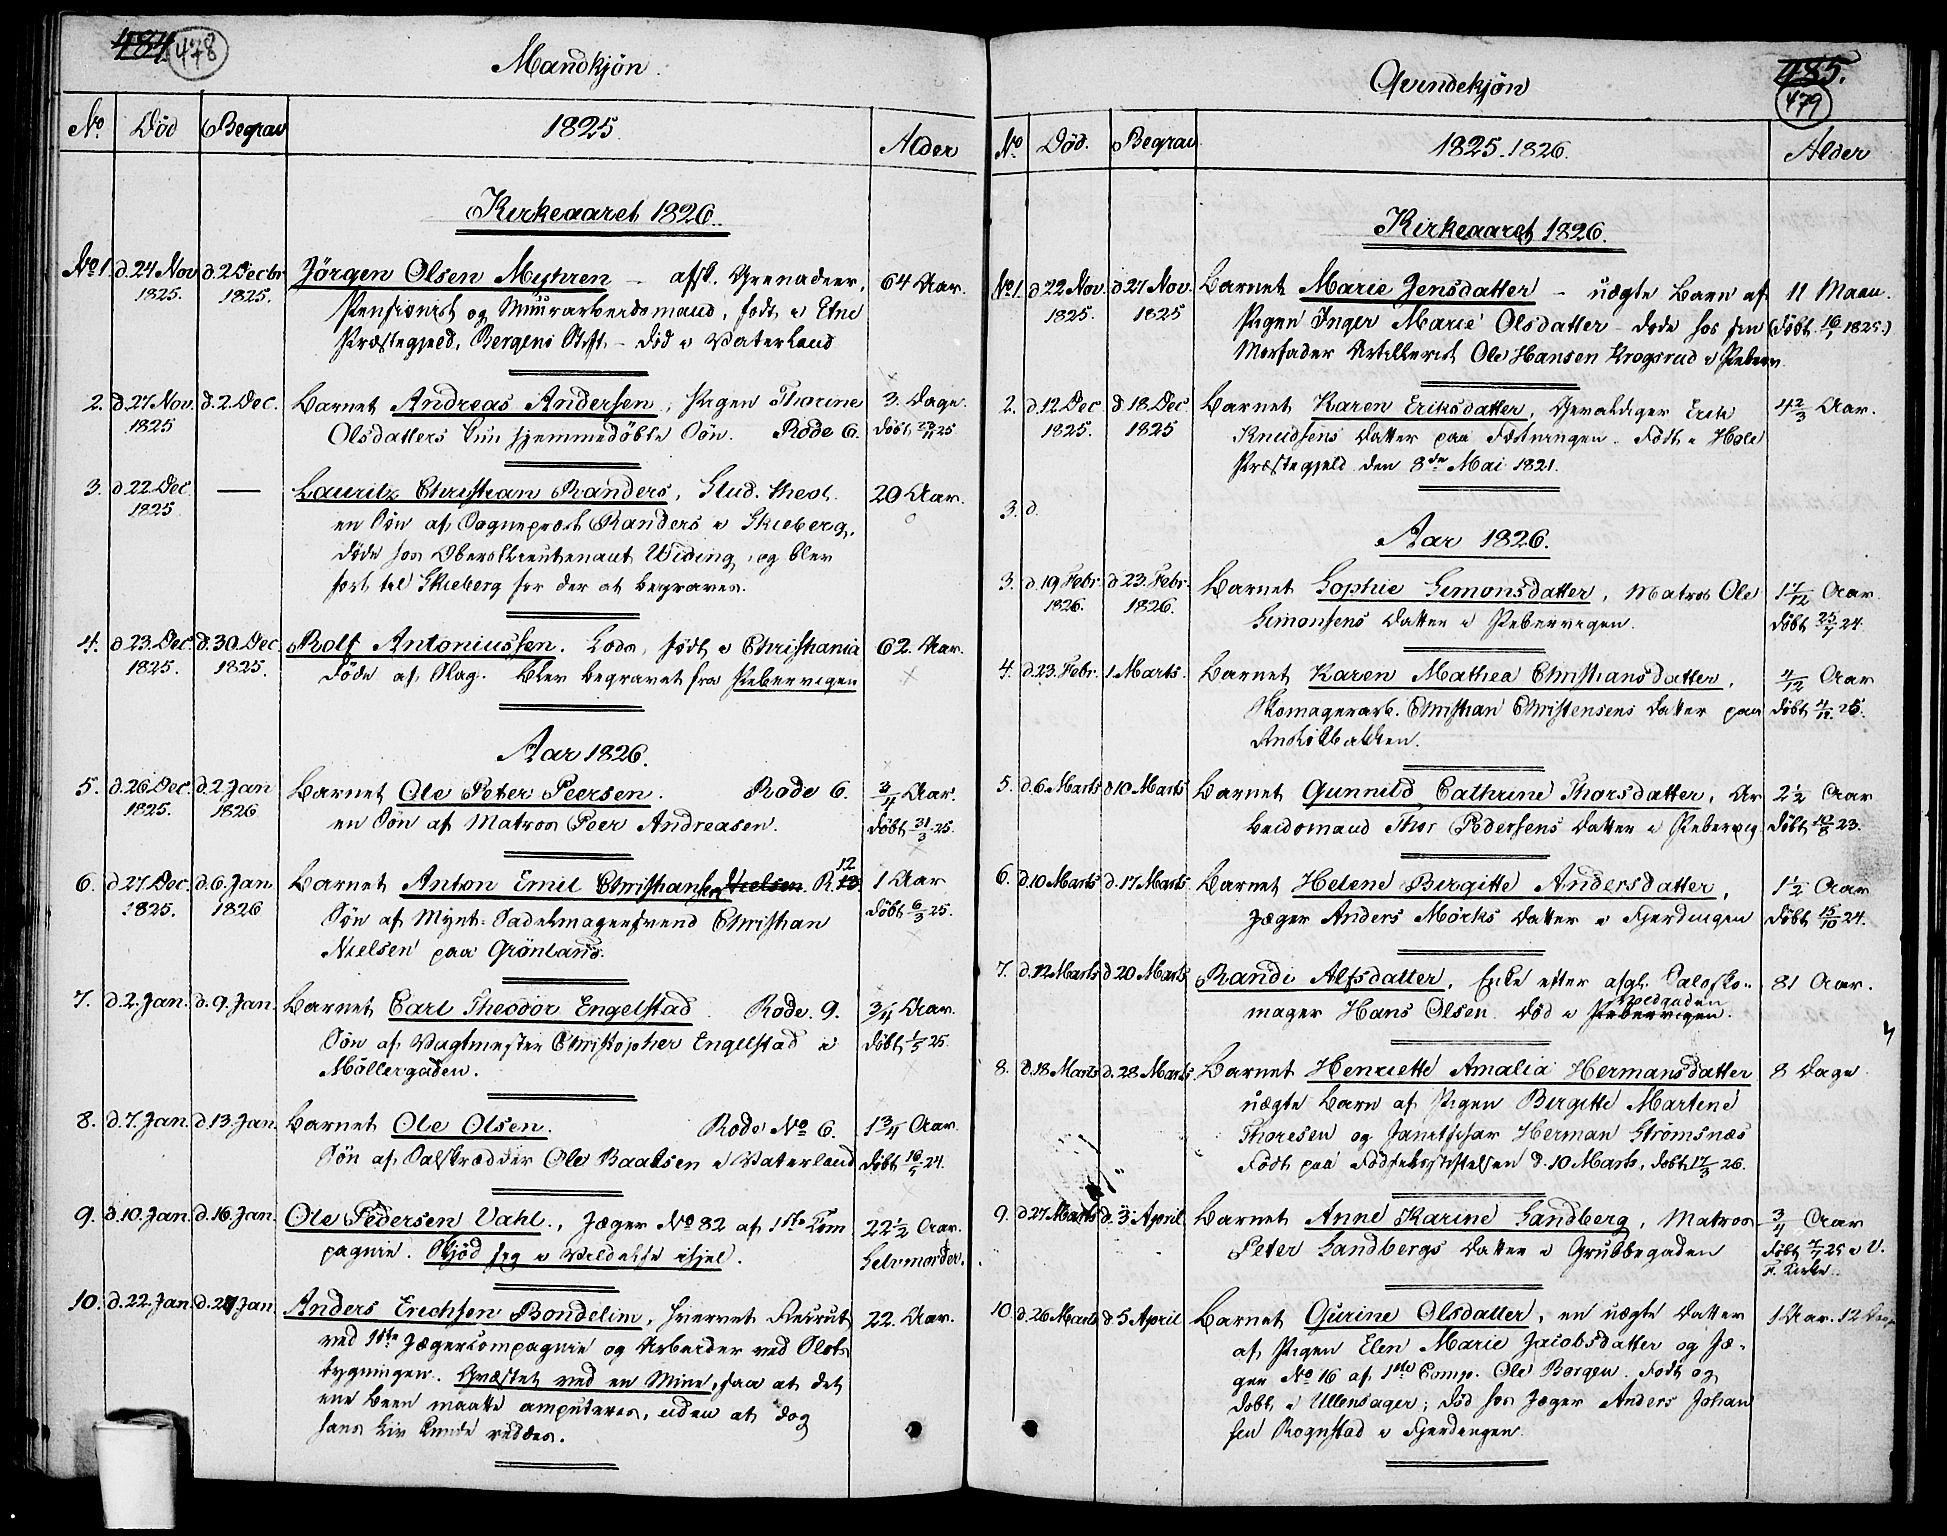 484.
478
Mandkjön.
No. Död Begrav 1825. Alder
Kirkeaaret 1826.
No 1. d. 24 Nov 1825. d. 2 Decbr 1825. Jörgen Olsen Myhren – afsk. Grenadeer, 64 Aar.
Pensionist og Muurarbeidsmand, født i Etne
Præstegjeld, Bergens Stift. – Död i Vaterland
2. d. 27 Nov. 1825 d. 2. Dec. Barnet Andreas Andersen, Pigen Thorine 3. Dage.
Olsdatters hjemmedöbte Sön. Rode 6. Födt 25
3. d. 22 Dec 1825 — Lauritz Christian Randers, Stud. theol. 20 Aar.
en Sön af Sogneprest Randers i Skieberg,
döde hos Oberstlieutenant Widing, og blev
fört til Skieberg for der at begraves.
4. d. 23. Dec. 1825. d. 30. Dec. 1825. Rolf Antoniussen. Lods, födt i Christiania 62. Aar.
döde af Slag. Blev begravet fra Pebervigen
Aar 1826.
5. d. 26. Dec. 1825. d. 2 Jan 1826 Barnet Ole Peter Peersen. Rode 6. 3/4 Aar.
en Sön af Matros Peer Andreasen. Döbt 31/3 25.
6. d. 27. Dec. 1825. d. 6. Jan. 1826 Barnet Anton Emil Christiansen Nielsen. R. 12 1 Aar
Sön af Mynt-Sadelmagersvend Christian Döbt 6/3 25.
Nielsen paa Grönland.
7. d. 2. Jan. d. 9. Jan. Barnet Carl Theodor Engelstad. Rode. 9. 3/4 Aar.
Sön af Vagtmester Christopher Engelstad i Döbt 1/5 25.
Möllergaden.
8. d. 7. Jan. d. 13. Jan. Barnet Ole Olsen. Rode No 6. 1 3/4 Aar.
Sön af Ole Baalsen i Vaterland Döbt 16/5 24.
9. d. 10. Jan. d. 16. Jan. Ole Pedersen Vahl., Jæger No 82 af 1ste Com 22 1/2 Aar.
pagnie. Skjöd sig i Vildelse ihjel. Selvmorder.
10. d. 22. Jan. d. 27 Jan. Anders Erichsen Bondelim, hvervet Recrut 22. Aar.
ved 1ste Jægercompagnie og Arbeider ved Slots
bygningen. Qvæstet ved en Mine, saa at det
ene Been maatte amputeres, uden at dog
hans Liv kunde reddes.
485.
479
Qvindekjön
No Död. Begrav 1825. 1826. Alder
Kirkeaaret 1826.
No 1. d 22 Nov. 1825. d 27 Nov. 1825 Barnet Marie Jensdatter – uægte Barn af 11 Maan.
Pigen Inger Marie Olsdatter – döde hos sin (Döbt 16/1 1825.)
Morfader Artillerist Ole Hansen Krogsrud i Peberv
2. d. 12 Dec 1825. d 18. Dec 1825 Barnet Karen Eriksdatter, Gevaldiger Erik 4 2/3 Aar.
Knudsens Datter paa Fæstningen. Födt i Hole
Præstegjeld den 8de Mai 1821.
3. d.
Aar 1826.
3. d. 19. Febr. 1826. d. 23. Febr. 1826. Barnet Sophie Simonsdatter, Matros Ole 1 7/12 Aar.
Simonsens Datter i Pebervigen. Döbt 25/7 24.
4. d. 23. Febr. 1 Marts. Barnet Karen Mathea Christiansdatter, 4/12 Aar
Skomagerarb. Christian Christensens Datter paa Döbt 25.
Ankerbakken.
5. d. 6. Marts d 10 Marts Barnet Gunnild Cathrine Thorsdatter, Ar 2 1/2 Aar
beidsmand Thor Pedersens Datter i Pebervig Döbt 10/8 23.
6. d. 10 Marts d. 17 Marts Barnet Helene Birgitte Andersdatter, 1 1/2 Aar
Jæger Anders Mörks Datter i Fjerdingen Döbt 15/10 24.
7. d. 12 Marts d 20 Marts Randi Alfsdatter, Enke efter afgl. Salosko- 81 Aar.
mager Hans Olsen. Död i Pebervigen.
8. d. 18 Marts d. 28 Marts Barnet Henriette Amalia Hermansdatter 8 Dage
uægte Barn af Pigen Birgitte Martine
Thoresen og Janitschar Herman Strömsnæs
Födt paa Födselsstiftelsen d. 10 Marts, Döbt 17/3 26.
9. d 27 Marts d. 3 April Barnet Anne Karine Sandberg, Matros 3/4 Aar
Peter Sandbergs Datter i Grubbegaden Döbt 25 i V.
F. Kirke.
10. d. 26 Marts d 5 April Barnet Gurine Olsdatter, en uægte Datter 1 Aar. 12 Dage
af Pigen Elen Marie Jacobsdatter og Jæ-
ger No 16 af 1ste Comp. Ole Borgen. Födt og
Döbt i Ullensager; död hos Jæger Anders Johan
sen Rognstad i Fjerdingen.